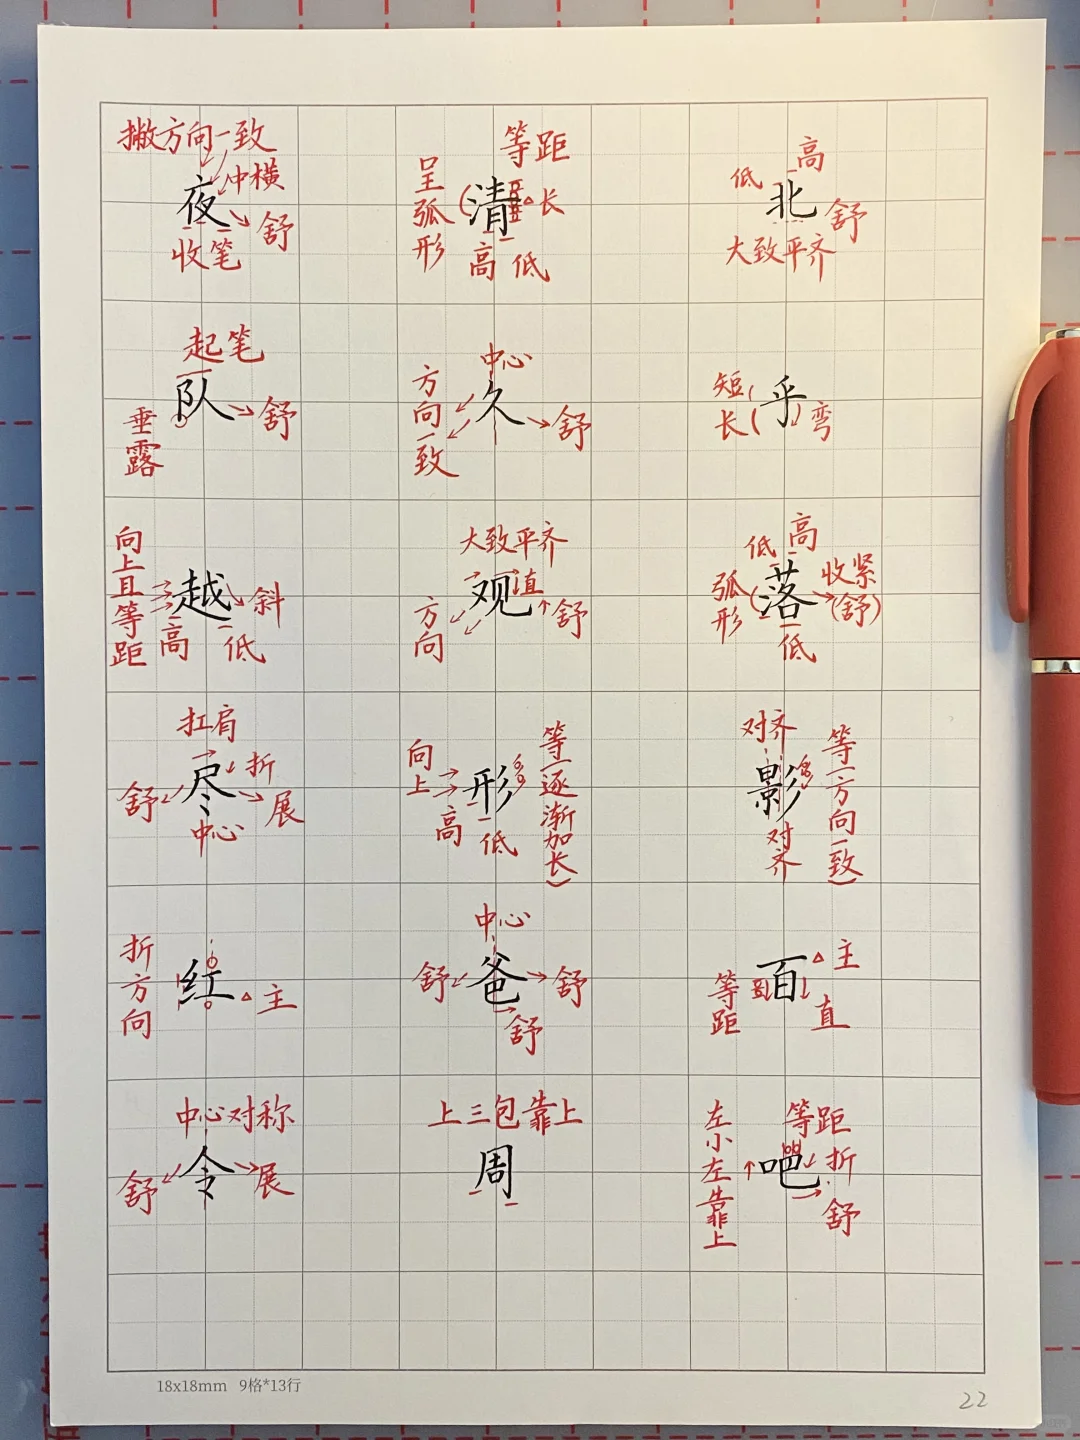 撇方向一致
冲横
夜
舒
收笔
等距
呈弧形
清
长
高 低
高
低
北
舒
大致平齐
起笔
队
舒
垂露
中心
方向一致
久
舒
短
长
乎
弯
向上且等距
越
斜
高
低
大致平齐
观
直
方向
舒
高
低
弧形
落
收紧
(舒)
低
扛肩
尽
折
舒
展
中心
向上
形
高
低
等(逐渐加长)
对齐
影
对齐
等(方向一致)
折方向
红
主
中心
舒
爸
舒
舒
百
主
等距
直
中心对称
令
舒
展
上三包靠上
周
左小左靠上
等距
吧
折
舒
18x18mm 9格*13行
22